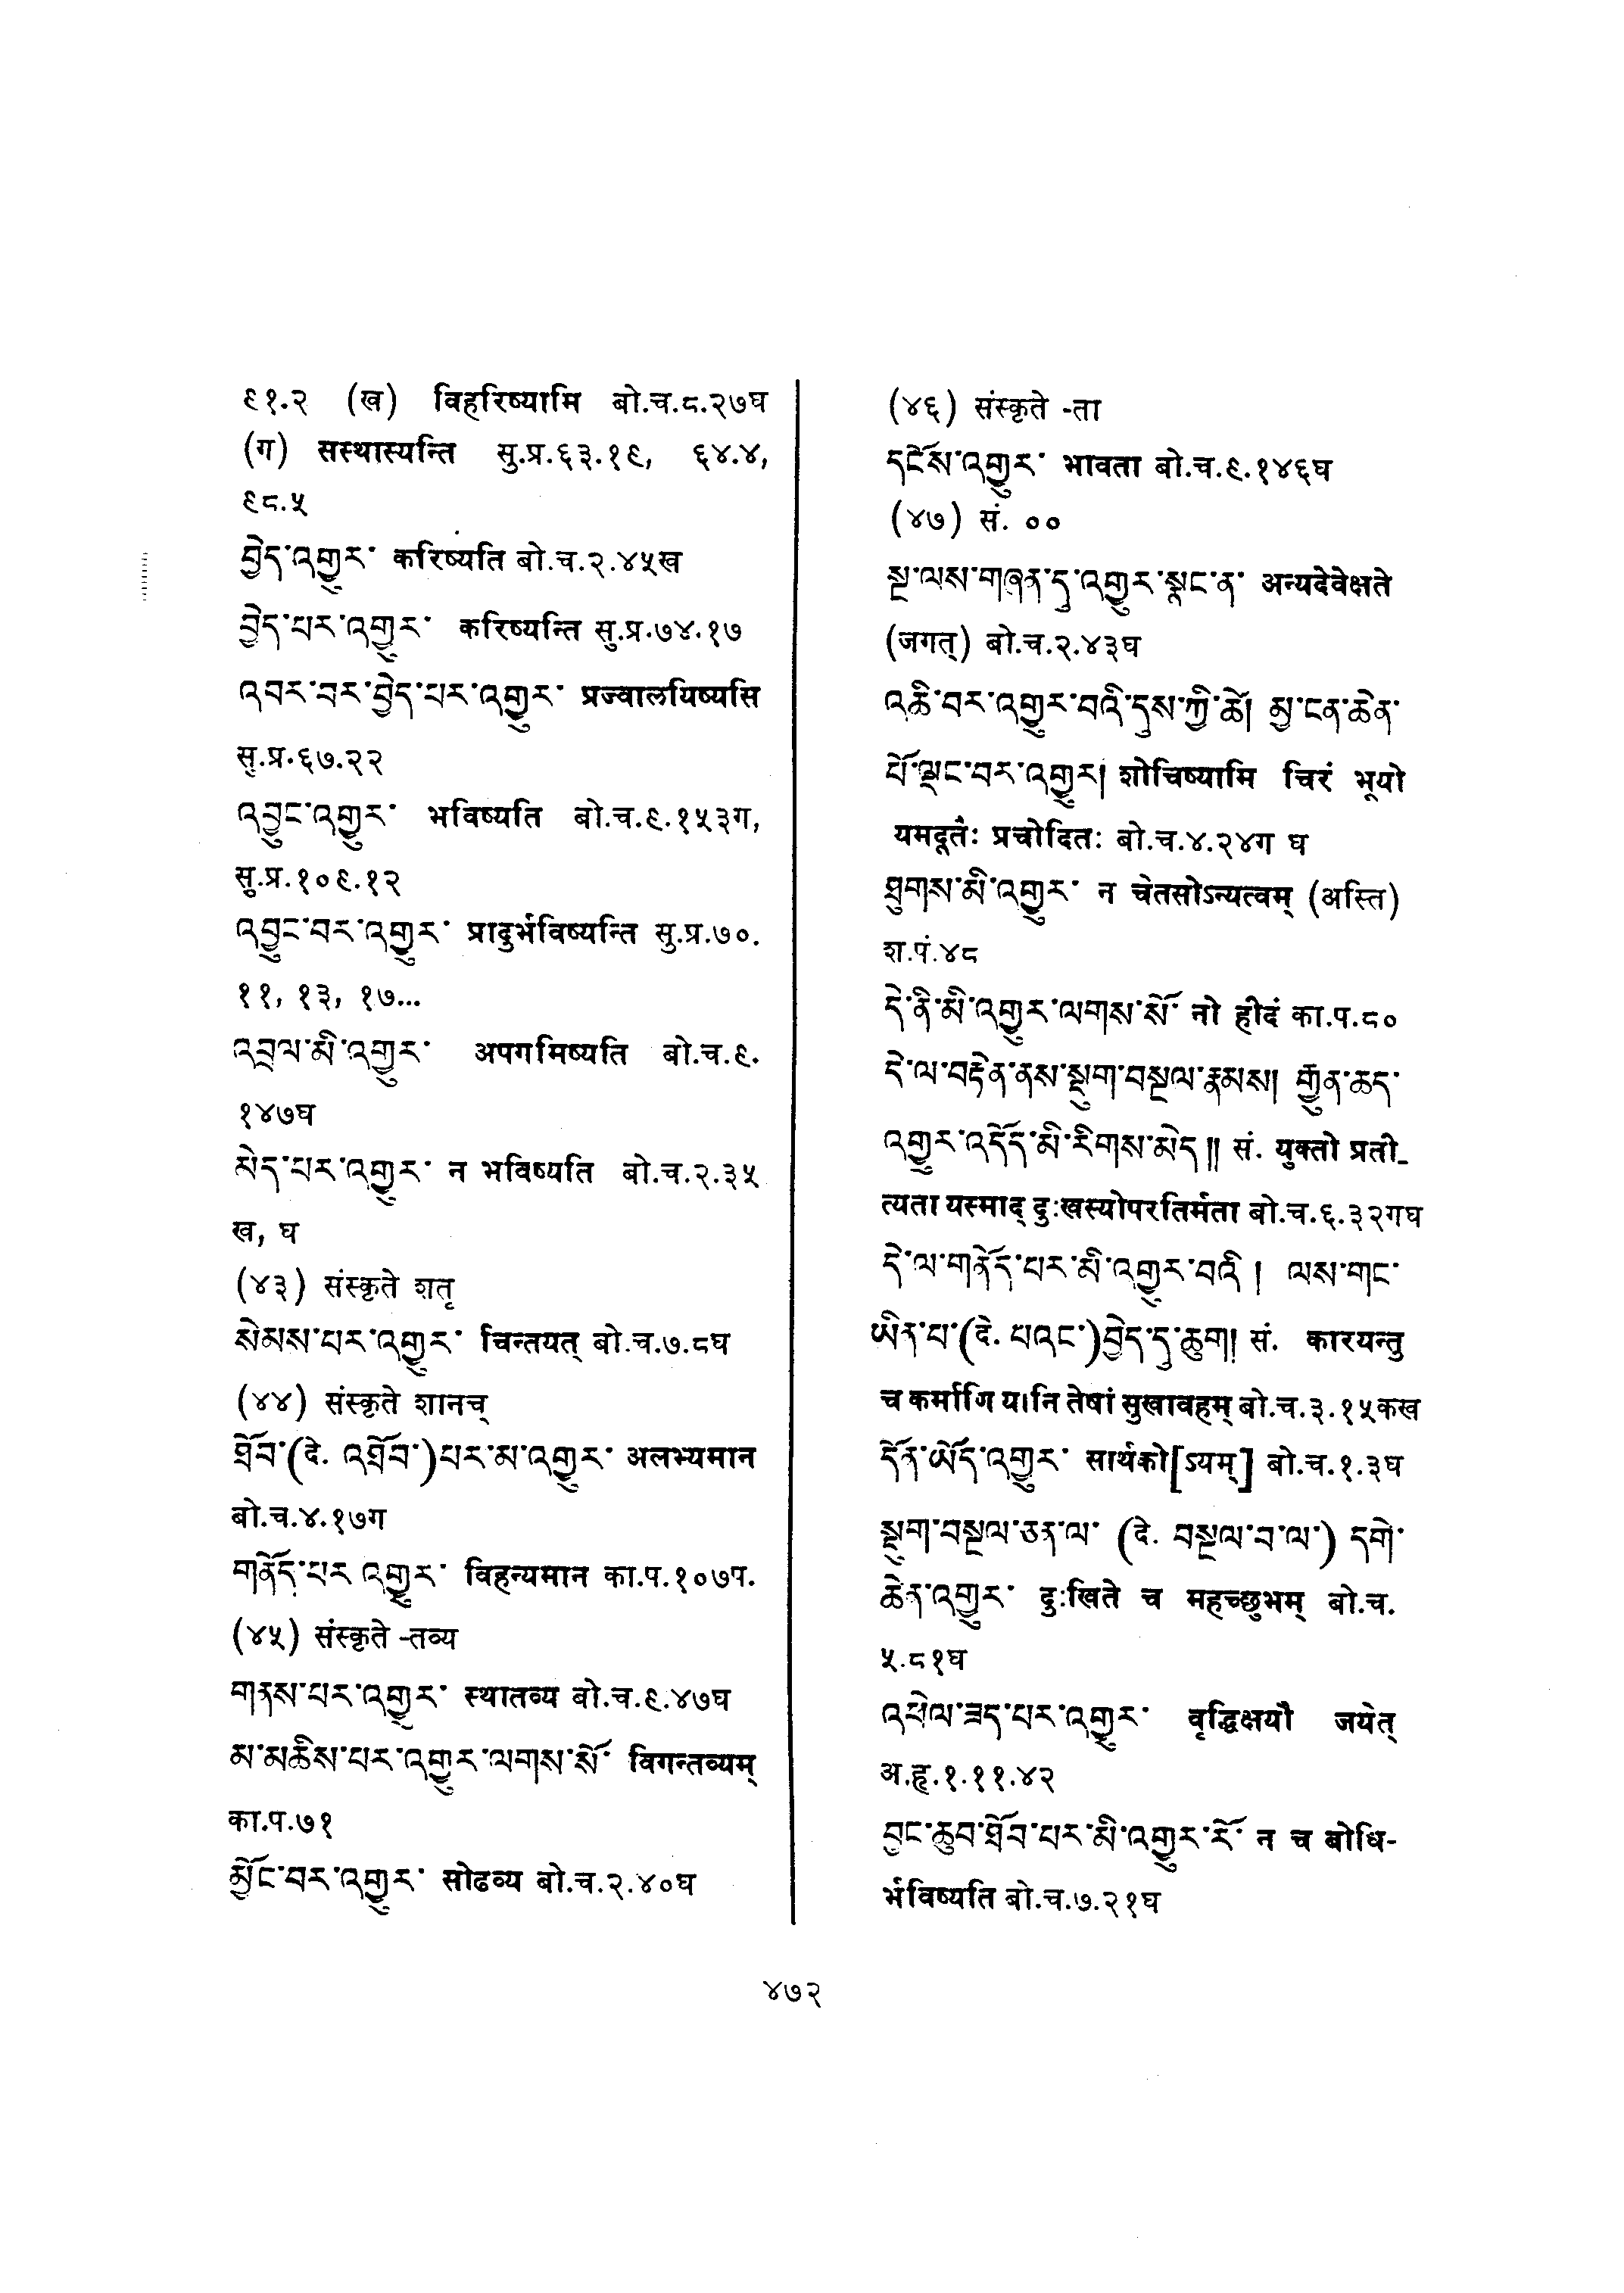 ९१.२ (ख) विहरिष्यामि बो.च.८.२७घ
(ग) सस्थास्यन्ति सु.प्र.६३.१९, ६४.४,
९८.५
བྱེད་འགྱུར་ करिष्यति बो.च.२.४५ख
བྱེད་པར་འགྱུར་ करिष्यन्ति सु.प्र.७४.१७
འབར་བར་བྱེད་པར་འགྱུར་ प्रज्वालयिष्यसि
सु.प्र.६७.२२
འབྱུང་འགྱུར་ भविष्यति बो.च.९.१५३ग,
सु.प्र.१०९.१२
འབྱུང་བར་འགྱུར་ प्रादुर्भविष्यन्ति सु.प्र.७०.
११, १३, १७...
འབྲལ་མི་འགྱུར་ अपगमिष्यति बो.च.९.
१४७घ
མེད་པར་འགྱུར་ न भविष्यति बो.च.२.३५
ख, घ
(४३) संस्कृते शतृ
སེམས་པར་འགྱུར་ चिन्तयत् बो.च.७.८घ
(४४) संस्कृते शानच्
ཐོབ་(दे. འཐོབ་)པར་མ་འགྱུར་ अलभ्यमान
बो.च.४.१७ग
གནོད་པར འགྱུར་ विहन्यमान का.प.१०७प.
(४५) संस्कृते -तव्य
གནས་པར་འགྱུར་ स्थातव्य बो.च.९.४७घ
མ་མཆིས་པར་འགྱུར་ལགས་སོ་ विगन्तव्यम्
का.प.७१
མྱོང་བར་འགྱུར་ सोढव्य बो.च.२.४०घ
(४६) संस्कृते -ता
དངོས་འགྱུར་ भावता बो.च.९.१४६घ
(४७) सं. ००
སྔ་ལས་གཞན་དུ་འགྱུར་སྣང་ན་ अन्यदेवेक्षते
(जगत्) बो.च.२.४३घ
འཆི་བར་འགྱུར་བའི་དུས་ཀྱི་ཚེ། མྱ་ངན་ཆེན་
པོ་ལྡང་བར་འགྱུར། शोचिष्यामि चिरं भूयो
यमदूतैः प्रचोदितः बो.च.४.२४ग घ
ཐུགས་མི་འགྱུར་ न चेतसोऽन्यत्वम् (अस्ति)
श.पं.४८
དེ་ནི་མི་འགྱུར་ལགས་སོ་ नो हीदं का.प.८०
དེ་ལ་བརྟེན་ནས་སྡུག་བསྔལ་རྣམས། རྒྱུན་ཆད་
འགྱུར་འདོད་མི་རིགས་མེད༎ सं. युक्तो प्रती-
त्यता यस्माद् दुःखस्योपरतिर्मता बो.च.६.३२गघ
དེ་ལ་གནོད་པར་མི་འགྱུར་བའི། ལས་གང་
ཡིན་པ་(दे. པའང་)བྱེད་དུ་ཆུག། सं. कारयन्तु
च कर्माणि यानि तेषां सुखावहम् बो.च.३.१५कख
དོན་ཡོད་འགྱུར་ सार्थको[ऽयम्] बो.च.१.३घ
སྡུག་བསྔལ་ཅན་ལ་ (दे. བསྔལ་བ་ལ་) དགེ་
ཆེན་འགྱུར་ दुःखिते च महच्छुभम् बो.च.
५.८१घ
འཕེལ་ཟད་པར་འགྱུར་ वृद्धिक्षयौ जयेत्
अ.हृ.१.११.४२
བྱང་ཆུབ་ཐོབ་པར་མི་འགྱུར་རོ་ न च बोधि-
र्भविष्यति बो.च.७.२१घ
४७२